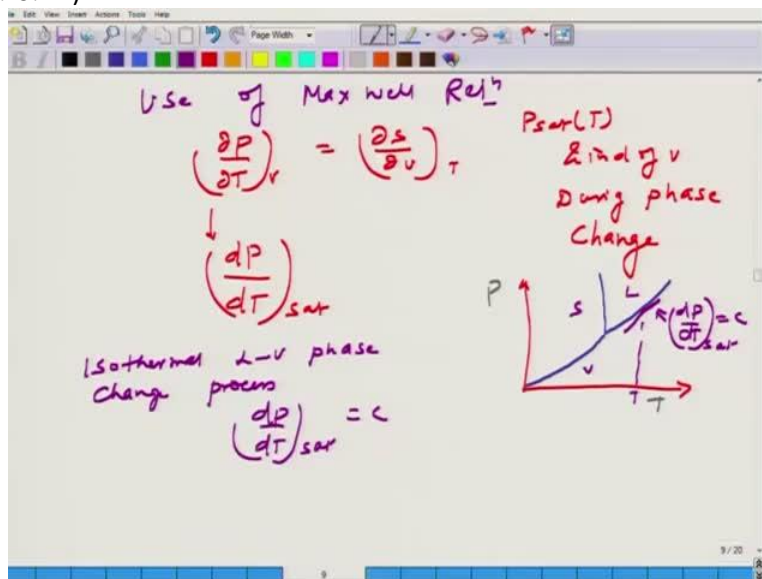 Edit View Insert Actions Tools Help
Page Width
B I
Use of Maxwell Relⁿ
(∂P/∂T)v = (∂s/∂v)T
↓
(dP/dT)sat
Isothermal L-V phase
change process
(dP/dT)sat = c
Psat(T)
& ind of v
During phase
Change
P
S
L
V
(dP/dT)sat = c
T
T
9/20
9